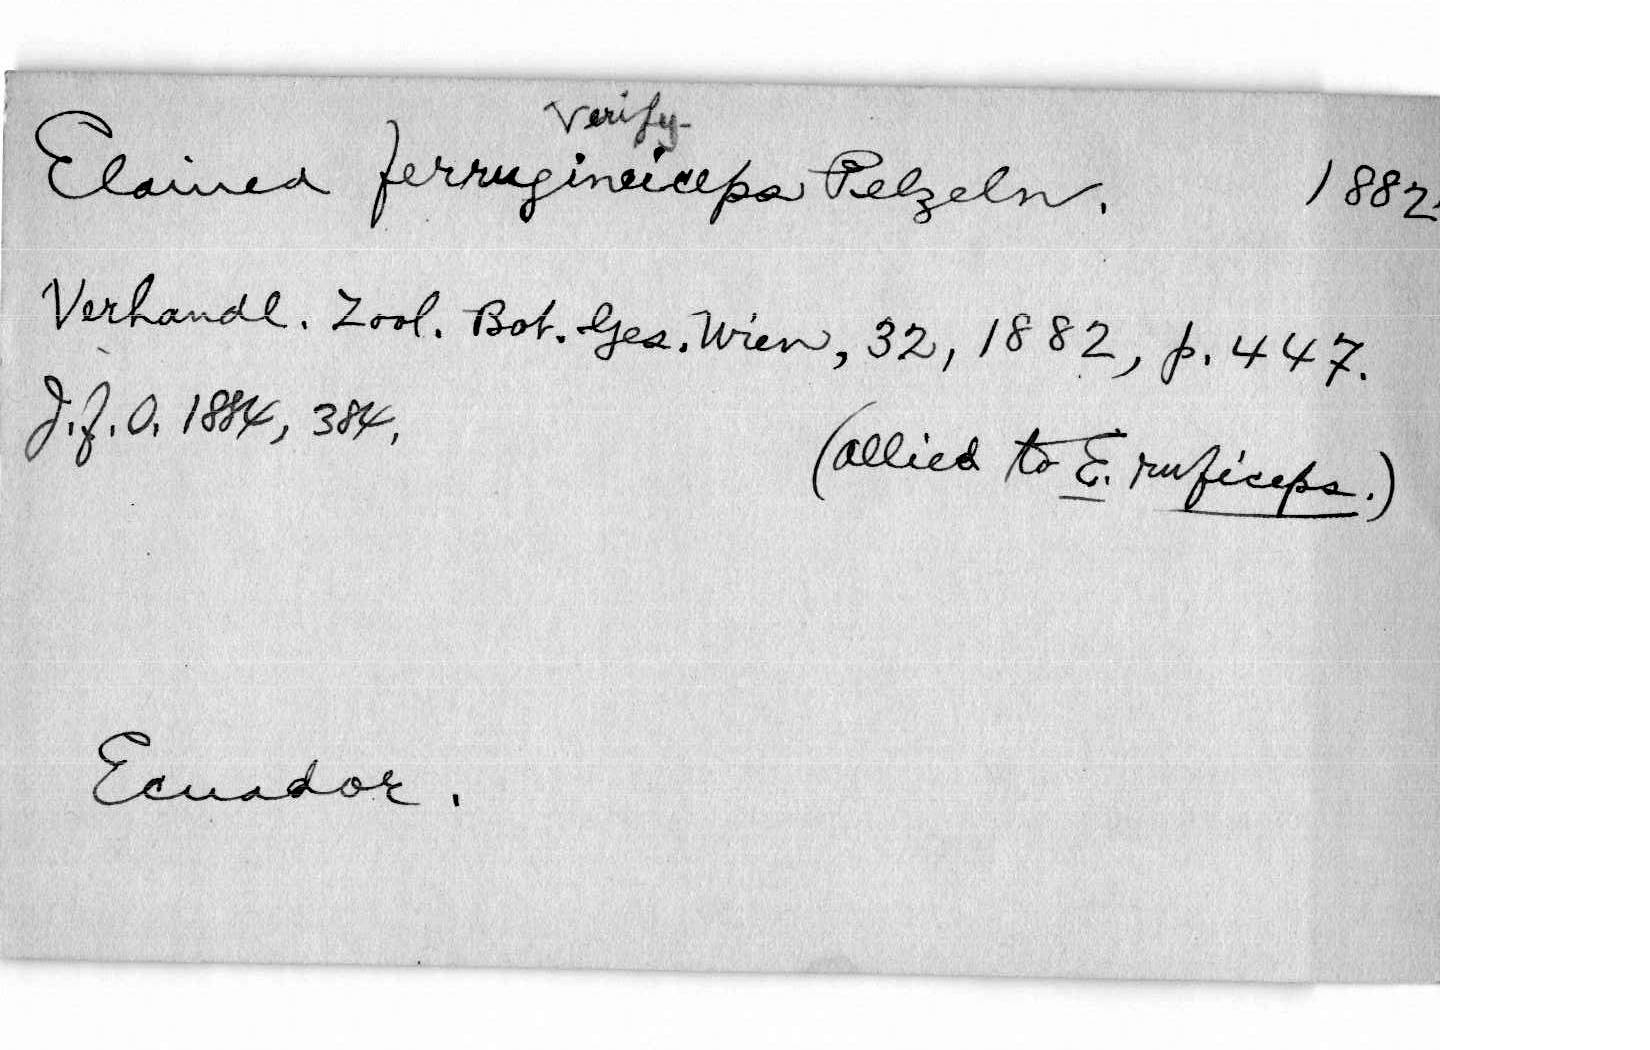 Verify-
Elainea ferrugineiceps Pelzeln. 1882.
Verhandl. Zool. Bot. Ges. Wien, 32, 1882, p. 447.
J.f.O. 1884, 384.
(allied to E. ruficeps.)
Ecuador.